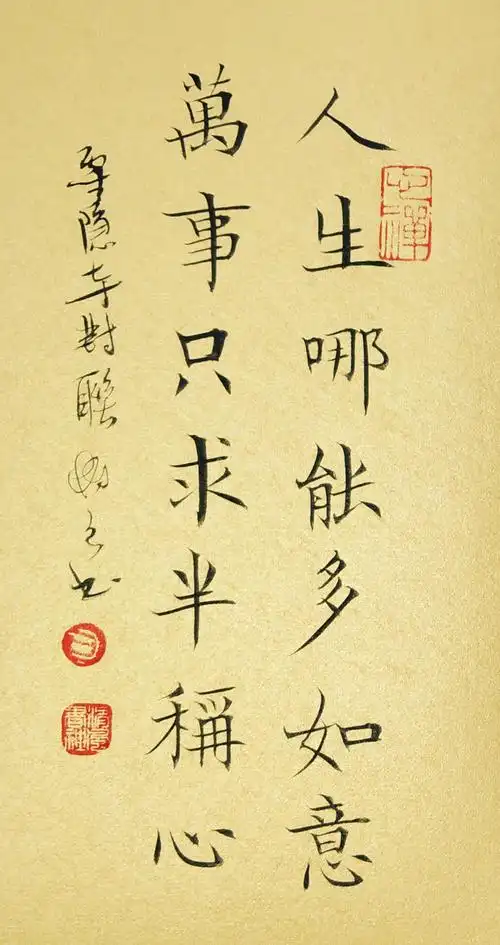 人生哪能多如意
萬事只求半稱心
靈隐寺對聯
书